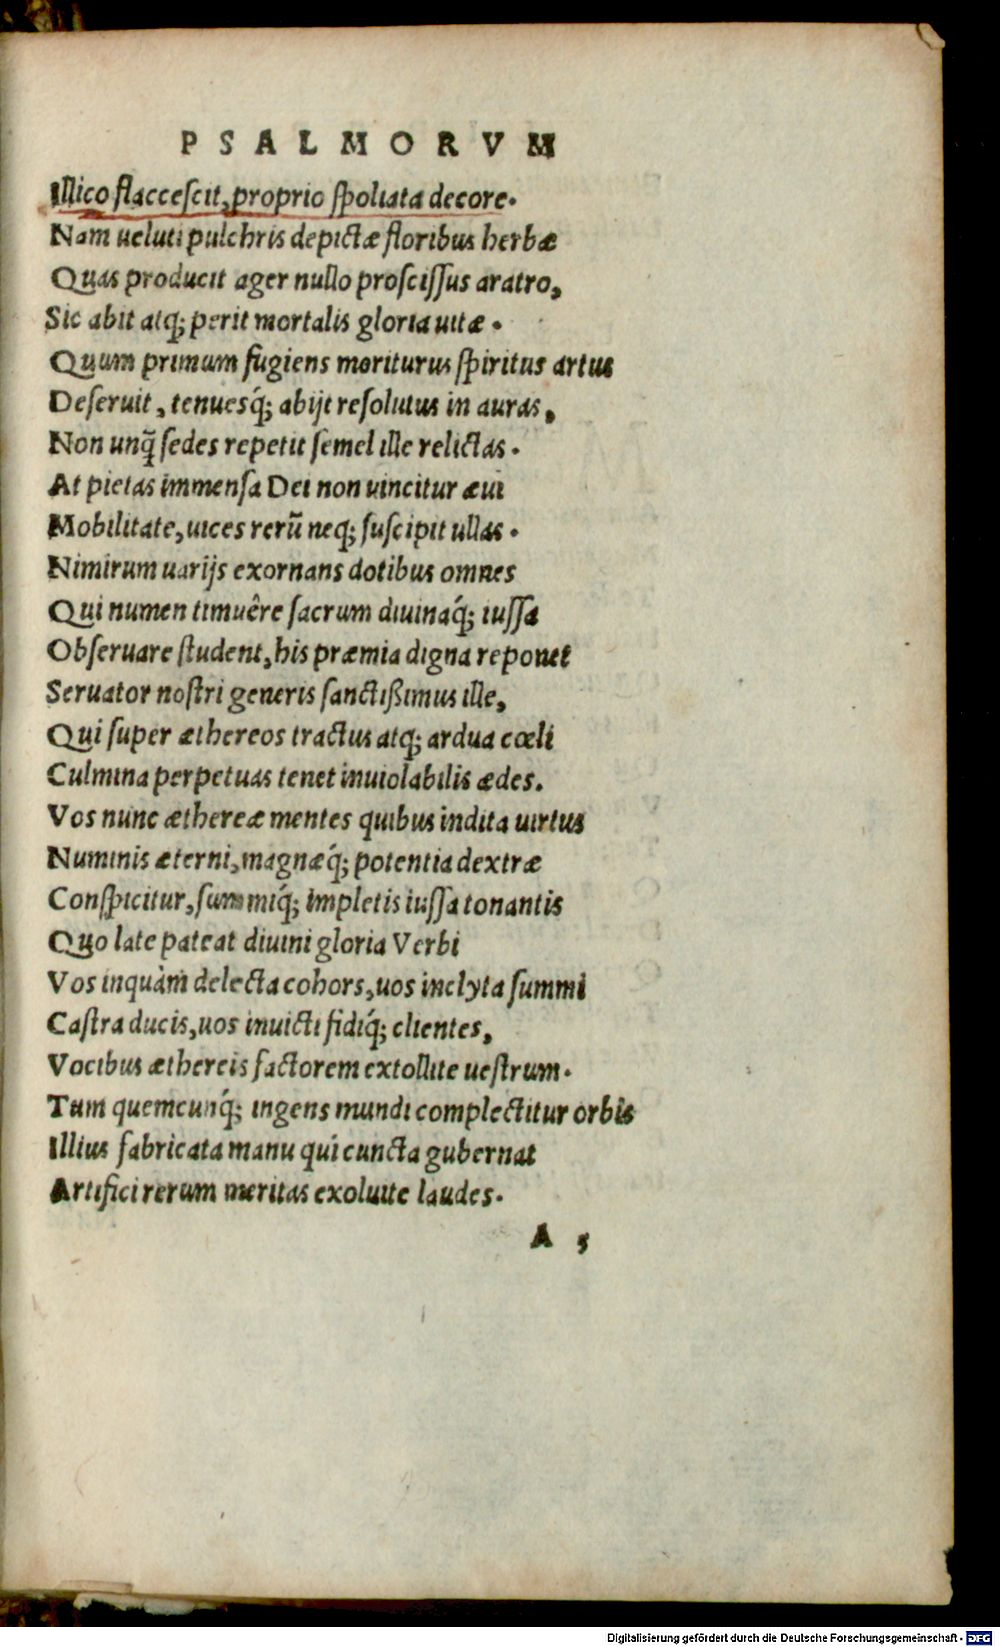 PSALMORVM
Illico flaccescit, proprio spoliata decore.
Nam ueluti pulchris depictæ floribus herbæ
Quas producit ager nullo proscissus aratro,
Sic abit atq; perit mortalis gloria uitæ.
Quum primum fugiens moriturus spiritus artus
Deseruit, tenuesq́; abijt resolutus in auras,
Non unq̃ sedes repetit semel ille relictas.
At pietas immensa Dei non uincitur æui
Mobilitate, uices rerũ neq; suscipit ullas.
Nimirum uarijs exornans dotibus omnes
Qui numen timuêre sacrum diuinaq́; iussa
Obseruare student, his præmia digna reponet
Seruator nostri generis sanctißimus ille,
Qui super æthereos tractus atq; ardua cœli
Culmina perpetuas tenet inuiolabilis ædes.
Vos nunc æthereæ mentes quibus indita uirtus
Numinis æterni, magnæq́; potentia dextræ
Conspicitur, summiq́; impletis iussa tonantis
Quo late pateat diuini gloria Verbi
Vos inquàm delecta cohors, uos inclyta summi
Castra ducis, uos inuicti fidiq́; clientes,
Vocibus æthereis factorem extollite uestrum.
Tum quemcunq́; ingens mundi complectitur orbis
Illius fabricata manu qui cuncta gubernat
Artifici rerum meritas exoluite laudes.
A 5
Digitalisierung gefördert durch die Deutsche Forschungsgemeinschaft - DFG